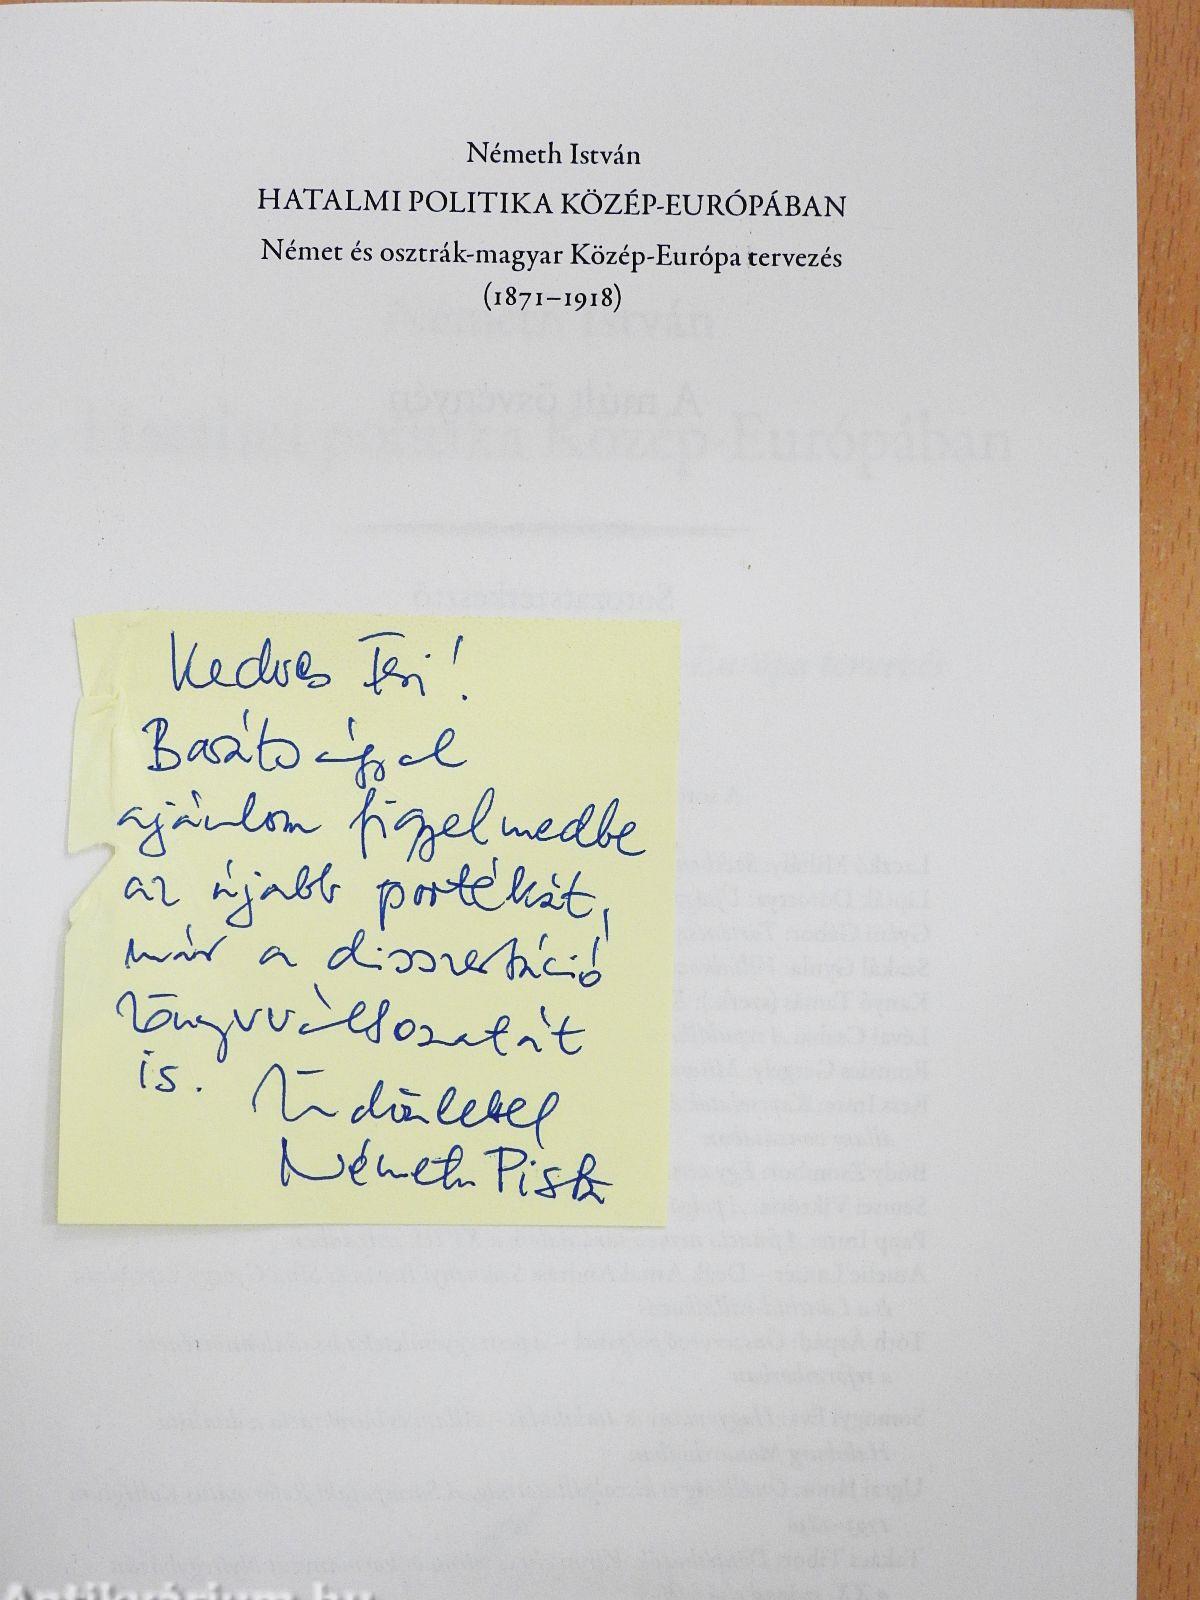 Németh István
HATALMI POLITIKA KÖZÉP-EURÓPÁBAN
Német és osztrák-magyar Közép-Európa tervezés
(1871–1918)
Kedves Feri!
Barátsággal
ajánlom figyelmedbe
az újabb portékát,
már a disszertáció
könyvváltozatát
is. Üdvözlettel
Németh Pista
Antikvárium.hu